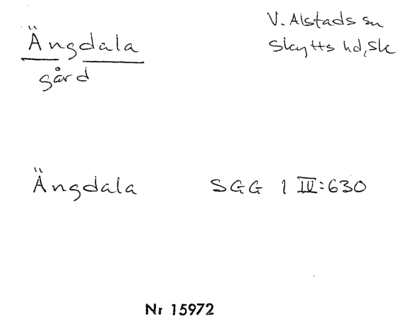 Ängdala
gård
V. Alstads sn
Skytts hd, Sk
Ängdala SGG 1 IV:630
Nr 15972